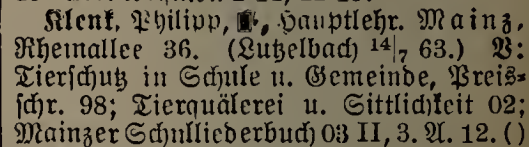 Klenk, Philipp, Hauptlehr. Mainz,
Rheinallee 36. (Lutzelbach 14|7 63.) V:
Tierschutz in Schule u. Gemeinde, Preis-
schr. 98; Tierquälerei u. Sittlichkeit 02;
Mainzer Schulliederbuch 03 II, 3. A. 12. ()